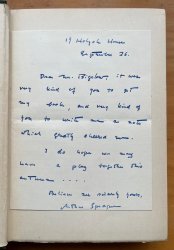 19 Holyoke House
September 26.
Dear Mr. Bigelow: it was
very kind of you to get
my book, and very kind of
you to write me a note
which greatly cheered me.
I do hope we may
have a play together this
autumn ....
Believe me sincerely yours,
Arthur Sprague